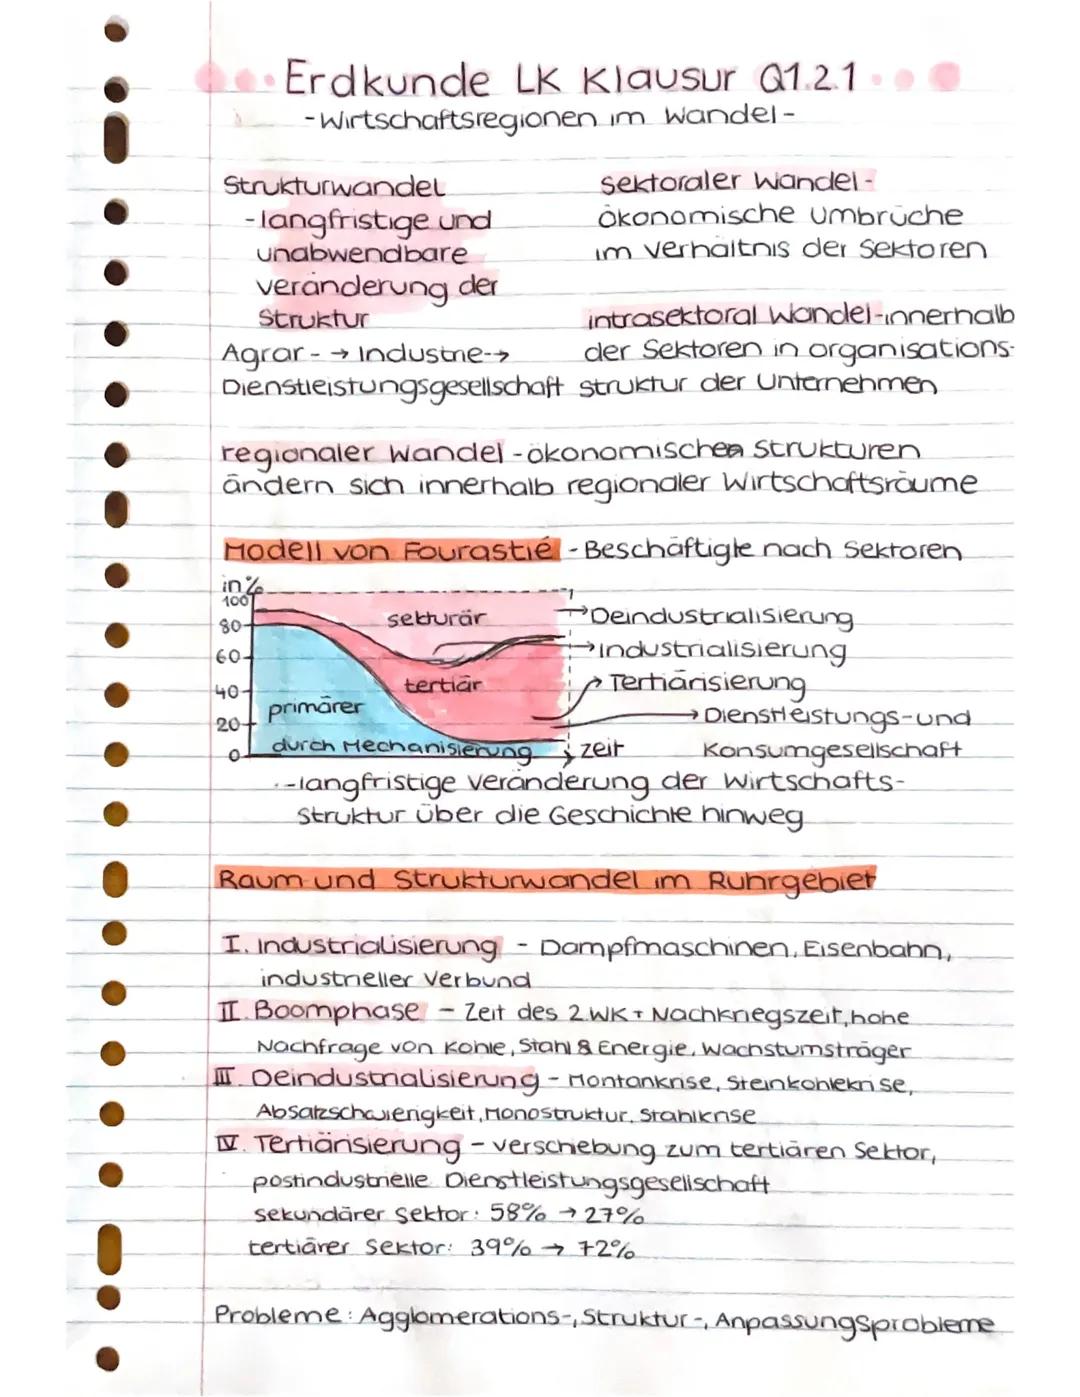 Erdkunde LK Klausur Q1.2.1
-Wirtschaftsregionen im Wandel-
Strukturwandel
-langfristige und
unabwendbare
veränderung der
Struktur
Agrar- → Industrie-→
Dienstleistungsgesellschaft
sektoraler Wandel-
ökonomische umbrüche
im verhältnis der Sektoren
intrasektoral Wandel-innerhalb
der Sektoren in organisations-
struktur der Unternehmen
regionaler Wandel-ökonomischen Strukturen
ändern sich innerhalb regionaler Wirtschaftsräume
Modell von Fourastié - Beschäftigte nach Sektoren
in%
100
80
60
40
20
0
sekturär
tertiär
primärer
durch Mechanisierung
zeit
→Deindustrialisierung
→industrialisierung
→Tertiärisierung
→Dienstleistungs-und
Konsumgesellschaft
-langfristige veränderung der Wirtschafts-
Struktur über die Geschichte hinweg
Raum und Strukturwandel im Ruhrgebiet
I. Industrialisierung - Dampfmaschinen, Eisenbahn,
industrieller Verbund
II. Boomphase - Zeit des 2.WK+ Nachkriegszeit, hohe
Nachfrage von Kohle, Stahl & Energie, Wachstumsträger
III. Deindustrialisierung - Montankrise, Steinkohlekrise,
Absatzschwierigkeit, Monostruktur, Stahlkrise
IV. Tertiärisierung - verschiebung zum tertiären Sektor,
postindustrielle Dienstleistungsgesellschaft
sekundärer Sektor: 58% → 27%
tertiärer Sektor: 39% → 72%
Probleme: Agglomerations-, Struktur-, Anpassungsprobleme